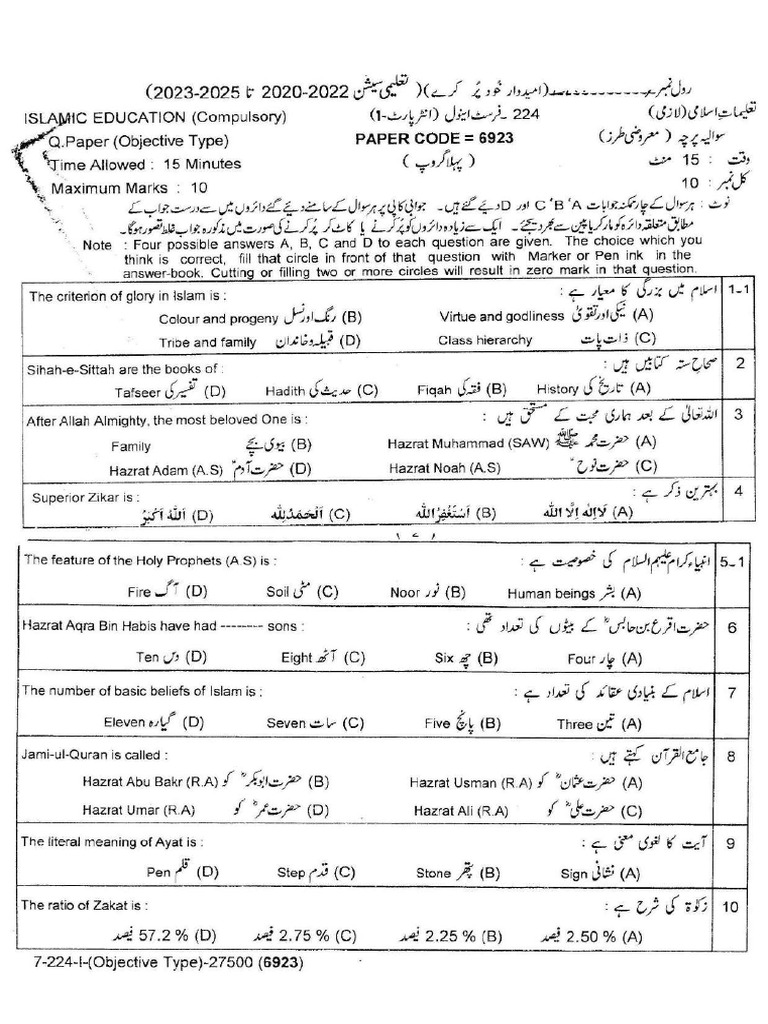 رول نمبر ــــــــــــــ (امیدوار خود پُر کرے) ( تعلیمی سیشن 2022-2020 تا 2025-2023)
تعلیمات اسلامی (لازمی) 224 - فرسٹ اینول (انٹرپارٹ-1) ISLAMIC EDUCATION (Compulsory)
سوالیہ پرچہ (معروضی طرز) PAPER CODE = 6923 Q.Paper (Objective Type)
وقت : 15 منٹ (پہلا گروپ) Time Allowed : 15 Minutes
کل نمبر : 10 Maximum Marks : 10
نوٹ : ہر سوال کے چار ممکنہ جوابات A ' B ' C اور D دیئے گئے ہیں۔ جوابی کاپی پر ہر سوال کے سامنے دیئے گئے دائروں میں سے درست جواب کے
مطابق متعلقہ دائرہ کو مارکر یا پین سے بھر دیجئے۔ ایک سے زیادہ دائروں کو پُر کرنے یا کاٹ کر پُر کرنے کی صورت میں مذکورہ جواب غلط تصور ہوگا۔
Note : Four possible answers A, B, C and D to each question are given. The choice which you
think is correct, fill that circle in front of that question with Marker or Pen ink in the
answer-book. Cutting or filling two or more circles will result in zero mark in that question.
1-1 اسلام میں بزرگی کا معیار ہے : The criterion of glory in Islam is :
(A) نیکی اور تقویٰ Virtue and godliness (B) رنگ اور نسل Colour and progeny
(C) ذات پات Class hierarchy (D) قبیلہ و خاندان Tribe and family
2 صحاح ستہ کتابیں ہیں : Sihah-e-Sittah are the books of :
(A) تاریخ کی History (B) فقہ کی Fiqah (C) حدیث کی Hadith (D) تفسیر کی Tafseer
3 اللہ تعالیٰ کے بعد ہماری محبت کے مستحق ہیں : After Allah Almighty, the most beloved One is :
(A) حضرت محمد ﷺ Hazrat Muhammad (SAW) (B) بیوی بچے Family
(C) حضرت نوحؑ Hazrat Noah (A.S) (D) حضرت آدمؑ Hazrat Adam (A.S)
4 بہترین ذکر ہے : Superior Zikar is :
(A) لَا اِلٰهَ اِلَّا اللّٰه (B) اَسْتَغْفِرُ اللّٰه (C) اَلْحَمْدُ لِلّٰه (D) اَللّٰهُ اَكْبَرُ
5-1 انبیاء کرام علیہم السلام کی خصوصیت ہے : The feature of the Holy Prophets (A.S) is :
(A) بشر Human beings (B) نور Noor (C) مٹی Soil (D) آگ Fire
6 حضرت اقرع بن حابسؓ کے بیٹوں کی تعداد تھی : Hazrat Aqra Bin Habis have had -------- sons :
(A) چار Four (B) چھ Six (C) آٹھ Eight (D) دس Ten
7 اسلام کے بنیادی عقائد کی تعداد ہے : The number of basic beliefs of Islam is :
(A) تین Three (B) پانچ Five (C) سات Seven (D) گیارہ Eleven
8 جامع القرآن کہتے ہیں : Jami-ul-Quran is called :
(A) حضرت عثمانؓ کو Hazrat Usman (R.A) (B) حضرت ابوبکرؓ کو Hazrat Abu Bakr (R.A)
(C) حضرت علیؓ کو Hazrat Ali (R.A) (D) حضرت عمرؓ کو Hazrat Umar (R.A)
9 آیت کا لغوی معنی ہے : The literal meaning of Ayat is :
(A) نشانی Sign (B) پتھر Stone (C) قدم Step (D) قلم Pen
10 زکوٰۃ کی شرح ہے : The ratio of Zakat is :
(A) 2.50 % فیصد (B) 2.25 % فیصد (C) 2.75 % فیصد (D) 57.2 % فیصد
7-224-I-(Objective Type)-27500 (6923)